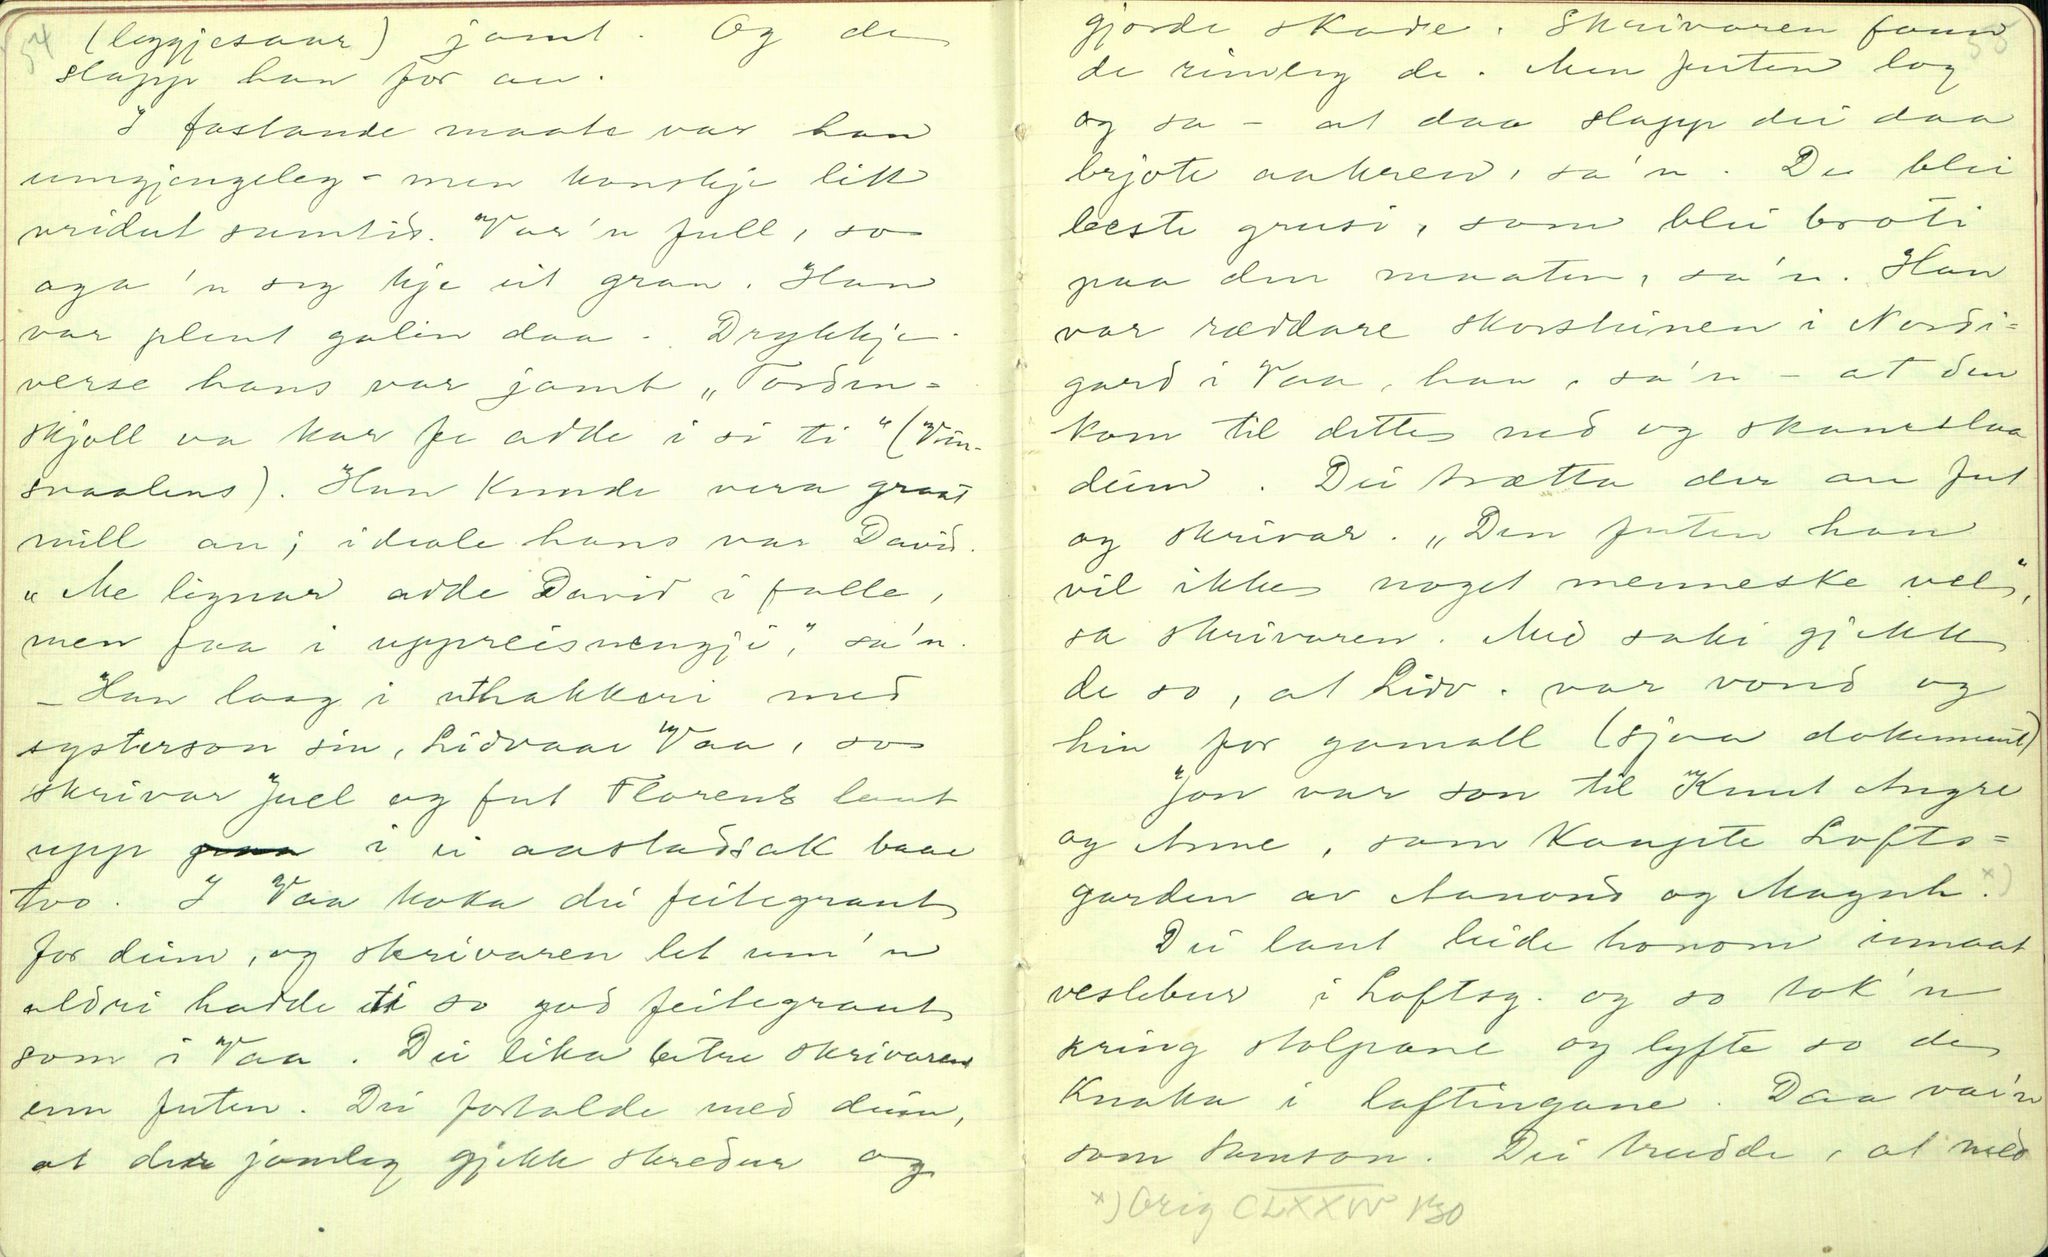 54
(leggjesaar) jamt. Og de
slapp han for au.
I fastande maate var han
umgjengeleg - men kanskje litt
vridut sumtid. Var'n full, so
aga 'n seg kje eit gran. Han
var plent galin daa. Drykkje-
verse hans var jamt „Tordin-
skjoll va kar fe adde i si ti" (Vin-
svaalens). Han kunde vera graat
mill au; ideale hans var David.
„Me lignar adde David i falle,
men faa i uppreisnengji", sa'n.
- Han laag i uthakkeri med
systerson sin, Lidvaar Vaa, so
skrivar Juel og fut Florents laut
upp i ei aastadsak baae
tvo. I Vaa koka dei feitegraut
for deim, og skrivaren let um'n
aldri hadde eti so god feitegraut
som i Vaa. Dei lika betre skrivaren
enn futen. Dei fortalde med deim,
at der jamleg gjekk skredur og
55
gjorde skade. Skrivaren fann
de rimeleg de. Men futen log
og sa - at daa slapp dei daa
brjote aakren, sa'n. De blei
beste grusi, som blei broti
paa den maaten, sa'n. Han
var ræddare skorsteinen i Nordi-
gard i Vaa, han, sa'n - at den
kom til dette ned og skameslaa
deim. Dei trætta der au fut
og skrivar. „Den futen han
vil ikke noget menneske vel",
sa skrivaren. Med saki gjekk
de so, at Lidv. var vond og
hin for gamall (sjaa dokument)
Jon var son til Knut Angre
og Anne, som kaupte Lofts-
garden av Aanond og Magnh. x)
Dei laut leide honom inmaat
veslebur i Loftsg. og so tok'n
kring stolpane og lyfte so de
knaka i laftingane. Daa va'n
som Samson. Dei trudde, at med
x) Orig CLXXIV 130